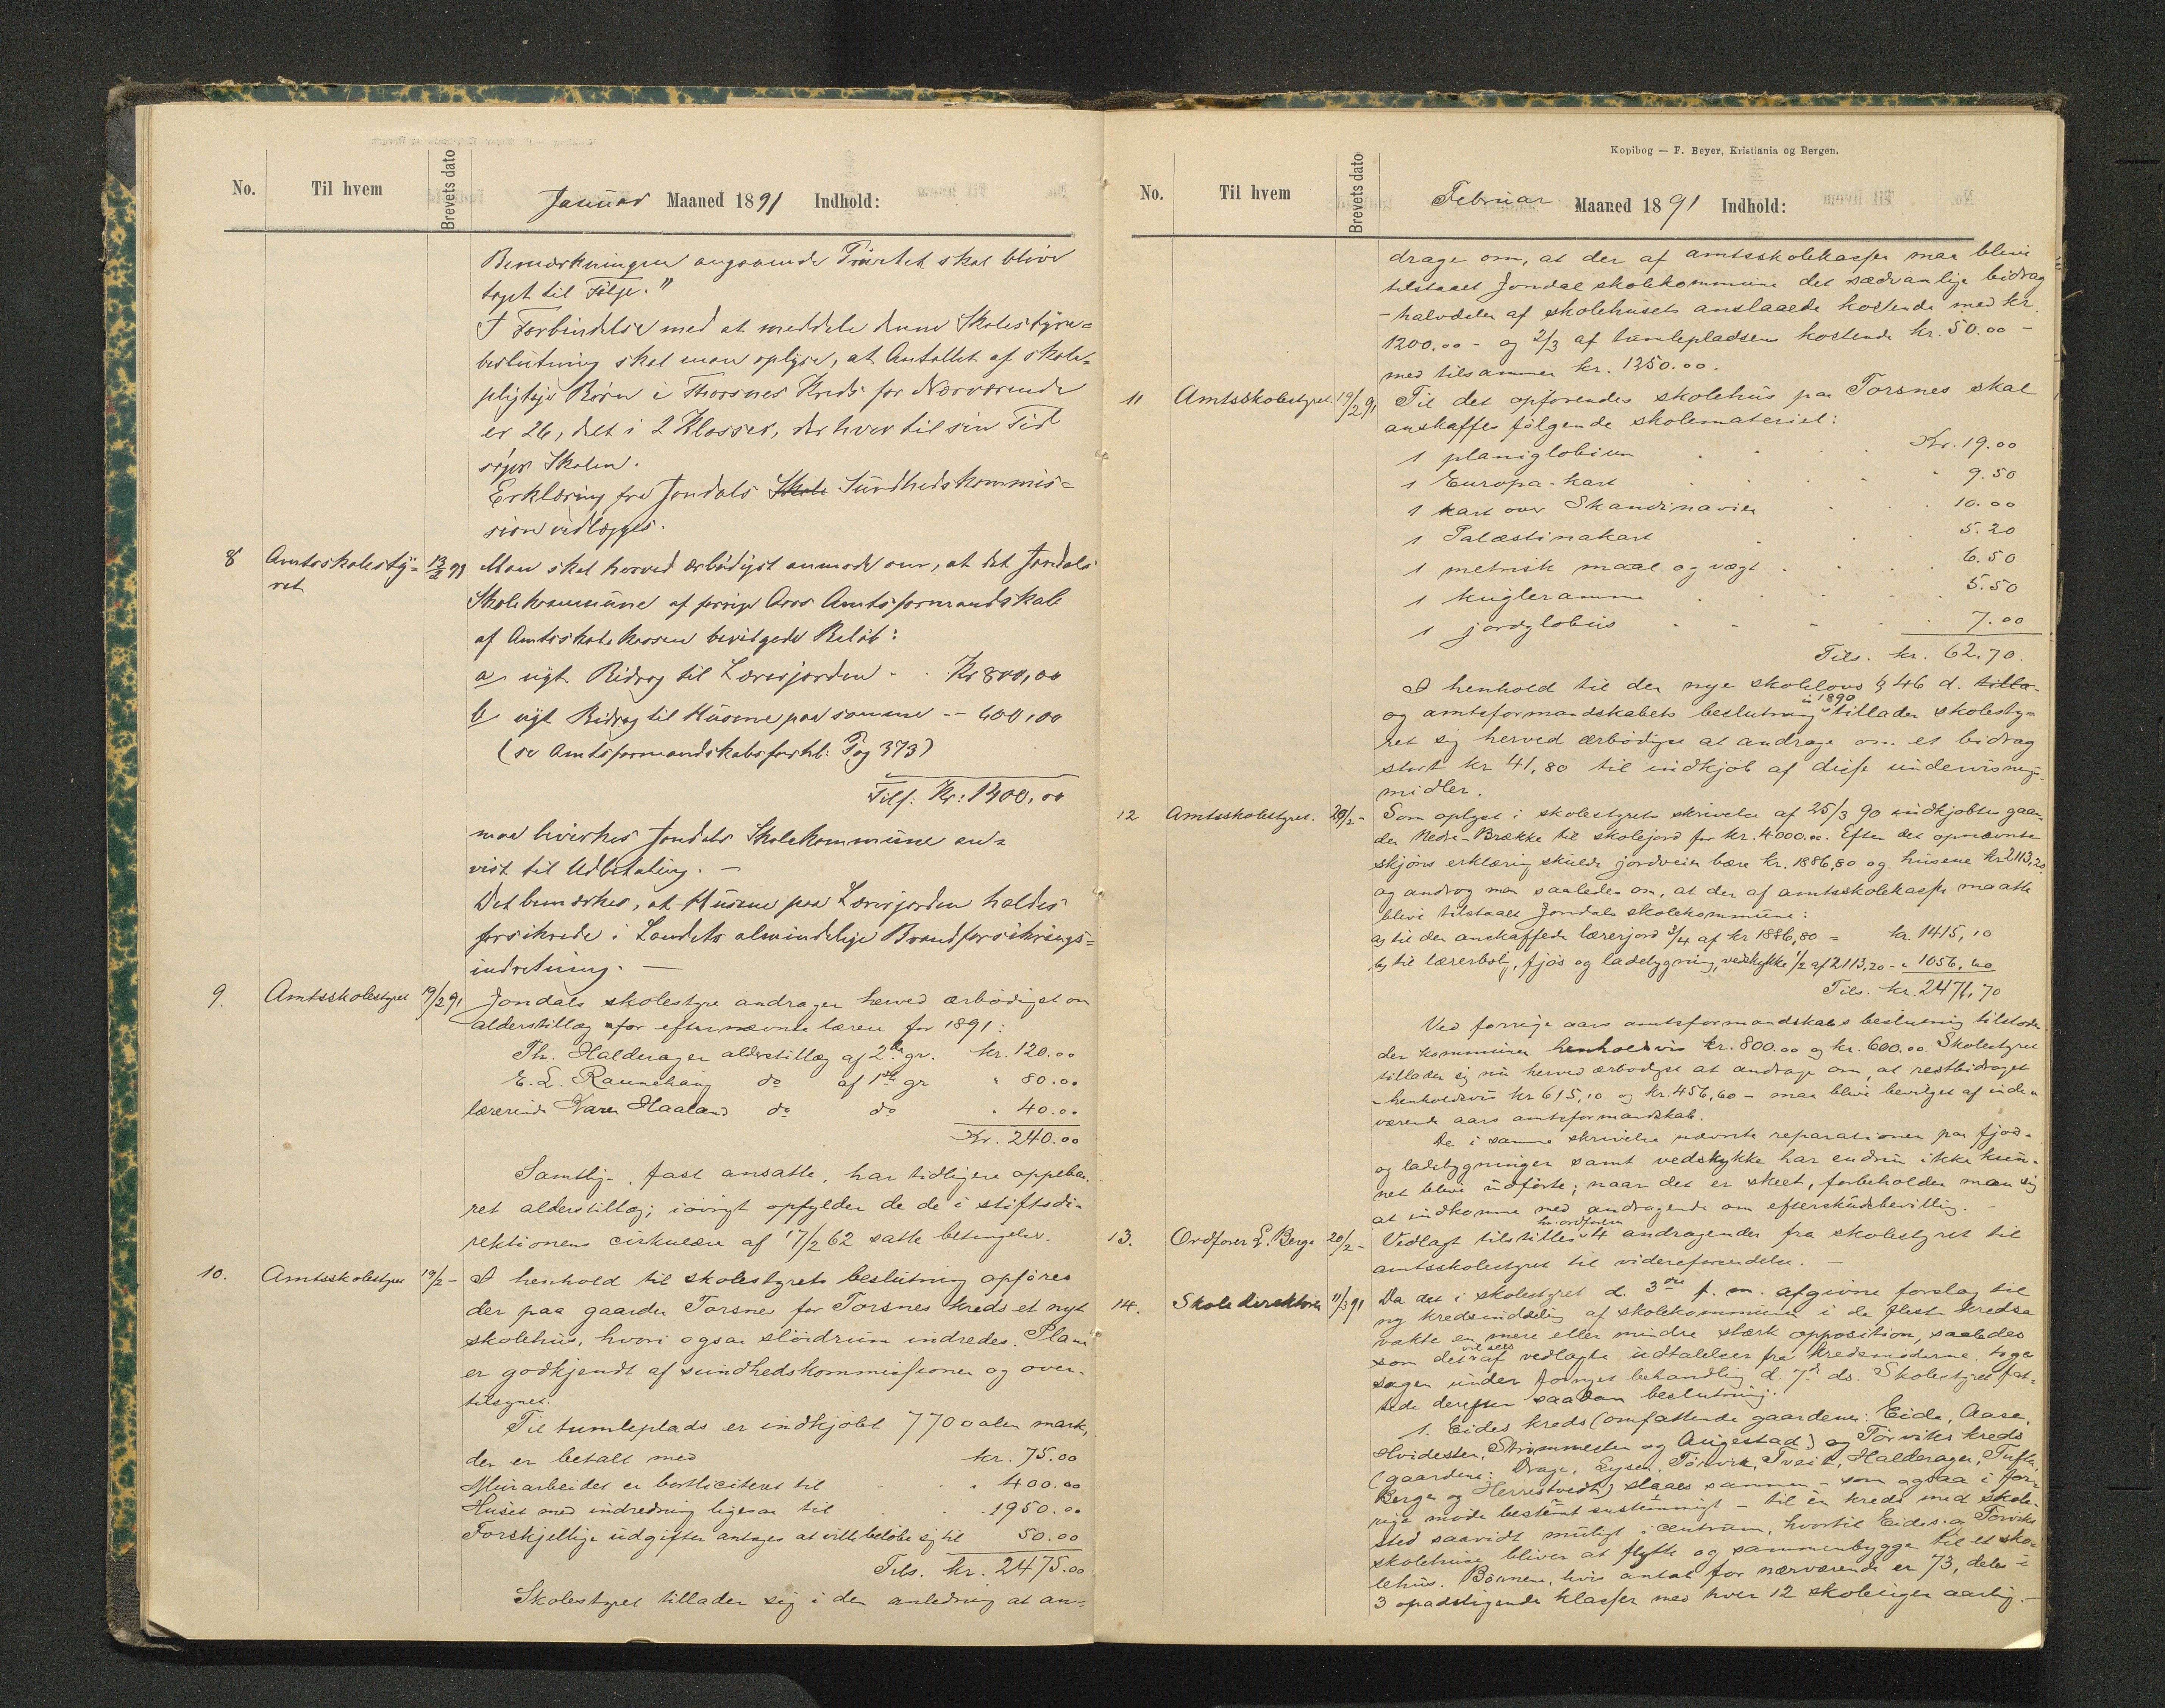 No. Til hvem Brevets dato Januar Maaned 1891 Indhold:
Bemærkningen angaaende skal blive
taget til Følge."
I Forbindelse med at meddele denne Skolestyre=
beslutning skal man oplyse, at Antallet af skole=
pligtige Børn i Thorsnes Kreds for Nærværende
er 26, delt i 2 Klasser, der hver til sin Tid
søger Skolen.
Erklæring fra Jondals Skole Sundhedskommis=
sion vedlægges.
8 Amtsskolesty= 13/2 91 Man skal herved ærbødigst anmode om, at det Jondals
ret Skolekommune af forrige Aars Amtsformandskab
af Amtsskolekassen bevilgede Beløb:
a, Bidrag til Lærerjorden - . Kr 800,00
b, Bidrag til Husene paa samme -- 600,00
(se Amtsformandskabsforhl. Pag 373)
Tils: Kr: 1400,00
maa bevirkes Jondals Skolekommune an=
vist til Udbetaling. -
Det bemærkes, at Husene paa Lærerjorden holdes
forsikrede i Landets almindelige Brandforsikrings=
indretning. —
9. Amtsskolestyret 19/2 91 Jondals skolestyre andrager herved ærbødigst om
alderstillæg for efternævnte lærere for 1891:
Th. Halderager alderstillæg af 2den gr. kr. 120.00
E. L. do af 1ste gr " 80.00
lærerinde Karen Haaland do do " 40.00
Kr. 240.00
Samtlige, fast ansatte, har tidligere oppebaa-
ret alderstillæg; iøvrigt opfylder de de i stiftsdi-
rektionens cirkulære af 17/2 62 satte betingelser.
10. Amtsskolestyret 19/2 - I henhold til skolestyrets beslutning opføres
der paa gaarden Torsnes for Torsnes kreds et nyt
skolehus, hvori ogsaa sløidrum indredes. Planen
er godkjendt af sundhedskommissionen og over-
tilsynet.
Til tumleplads er indkjøbt 770 □ alen mark,
der er betalt med kr. 75.00
Murarbeidet er bortliciteret til - . " 400.00
Huset med indredning ligesaa til . . 1950.00
Forskjellige udgifter antages at ville beløbe sig til 50.00
Tils. kr. 2475.00
Skolestyret tillader sig i den anledning at an-
Kopibog — F. Beyer, Kristiania og Bergen.
No. Til hvem Brevets dato Februar Maaned 1891 Indhold:
drage om, at der af amtsskolekassen maa blive
tilstaaet Jondal skolekommune det sædvanlige bidrag
- halvdelen af skolehusets anslaaede kostende med kr.
1200.00 - og 2/3 af tumlepladsens kostende kr. 50.00 -
med tilsammen kr. 1250.00.
11 Amtsskolestyret. 19/2 91 Til det opførendes skolehus paa Torsnes skal
anskaffes følgende skolemateriel:
1 planiglobium . . . Kr. 19.00
1 Europa-kart . . . " 9.50
1 kart over Skandinavien . . . 10.00
1 Palæstinakart . . 5.20
1 metrisk maal og vægt . . . . 6.50
1 kugleramme . . . . 5.50
1 jordglobus - - - . . 7.00
Tils. kr. 62.70.
I henhold til den nye skolelovs § 46 d. tilla-
og amtsformandskabets beslutning i 1890 tillader skolesty-
ret sig herved ærbødigst at andrage om et bidrag
stort kr 41,80 til indkjøb af disse undervisnings-
midler.
12 Amtsskolestyret. 20/2 - Som oplyst i skolestyrets skrivelse af 25/3 90 indkjøbtes gaar-
den Nedre-Brække til skolejord for kr. 4000.00. Efter det opnævnte
skjøns erklæring skulde jordveien bære kr. 1886,80 og husene kr 2113,20
og androg man saaledes om, at der af amtsskolekassen maatte
blive tilstaaet Jondals skolekommune:
a, til den anskaffede lærerjord 3/4 af kr 1886,80 = kr. 1415,10
b, til lærerbolig, fjøs og ladebygning, vedskykke 1/2 af 2113,20 - " 1056,60
Tils. kr. 2471,70
Ved forrige aars amtsformandskabs beslutning tilstodes
der kommunen henholdsvis kr. 800.00 og kr. 600.00. Skolestyret
tillader sig nu herved ærbødigst at andrage om, at restbidraget
- henholdsvis kr 615,10 og kr. 456,60 - maa blive bevilget af inde-
værende aars amtsformandskab.
De i samme skrivelse nævnte reparationer paa fjøs-
og ladebygninger samt vedskykke har endnu ikke kun-
net blive udførte; naar det er skeet, forbeholder man sig
at indkomme med andragende om efterskudsbevilling. -
13. Ordfører L. Berge 20/2 - Vedlagt tilstilles hr. ordføreren 4 andragender fra skolestyret til
amtsskolestyret til videreforsendelse. -
14. Skoledirektøren 11/3 91 Da det i skolestyret d. 3die f. m. afgivne forslag til
ny kredsinddeling af skolekommunen i de fleste kredse
vakte en mere eller mindre stærk opposition, saaledes
som det vil sees af vedlagte udtalelser fra kredsmøderne, toges
sagen under fornyet behandling d. 7d ds. Skolestyret fat-
tede derefter saadan beslutning:
1. Eides kreds (omfattende gaardene: Eide, Aase,
Hvidesten, Strømmesten og Augestad) og Torviks kreds
(gaardene: Drage, Eysen, Tørvik, Tveit, Halderager, Tufte,
Berge og Herrestvedt) slaaes sammen - som ogsaa i for-
rige møde bestemt enstemmigt - til én kreds med skole-
sted saavidt muligt i centrum, hvortil Eides og Torviks
skolehuse bliver at flytte og sammenbygge til et sko-
lehus. Børnene, hvis antal for nærværende er 73, deles i
3 opadstigende klasser med hver 12 skoleuger aarlig. —